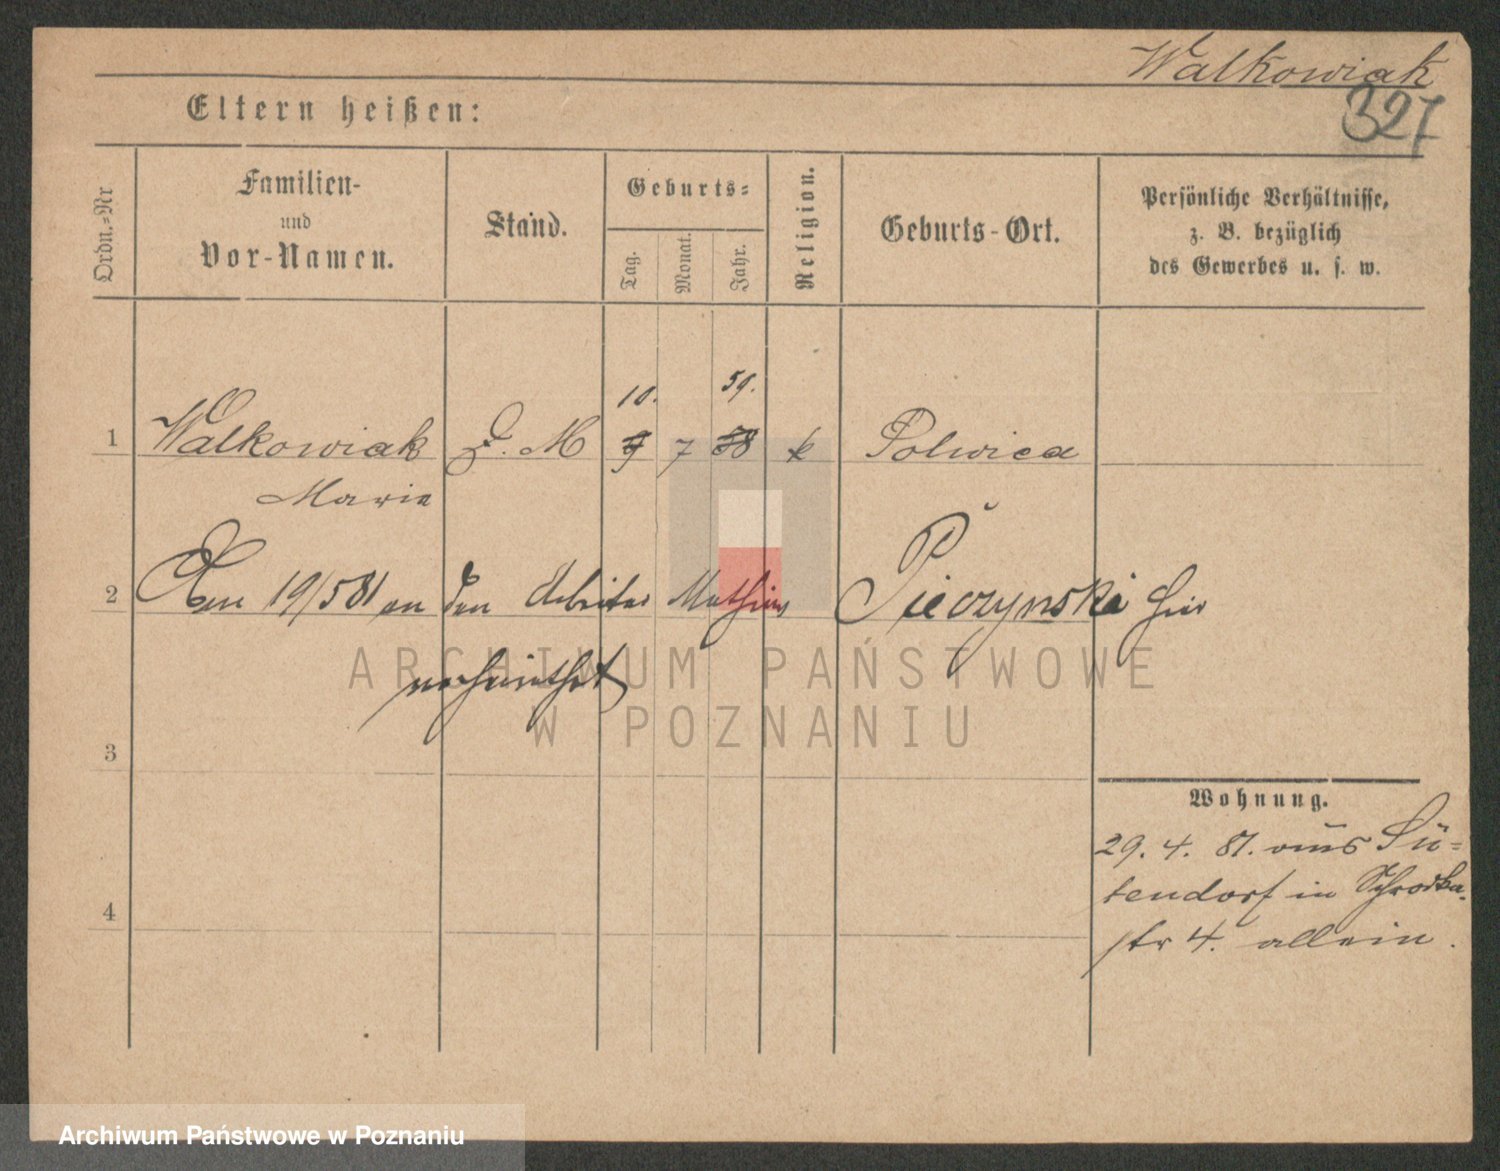 Walkowiak
327
Eltern heißen:
Ordn.-Nr
Familien-
und
Vor-Namen.
Stand.
Geburts-
Tag.
Monat.
Jahr.
Religion.
Geburts-Ort.
Persönliche Verhältnisse,
z. B. bezüglich
des Gewerbes u. s. w.
10. 59.
1 Walkowiak D. M 9 7 58 k Polwica
Marie
2 Am 19/5 81 an den Arbeiter Mathias Pieczynski hier
verheirathet
ARCHIWUM PAŃSTWOWE
W POZNANIU
3
Wohnung.
29. 4. 81. aus
in Schrodka
4
str 4. allein.
Archiwum Państwowe w Poznaniu